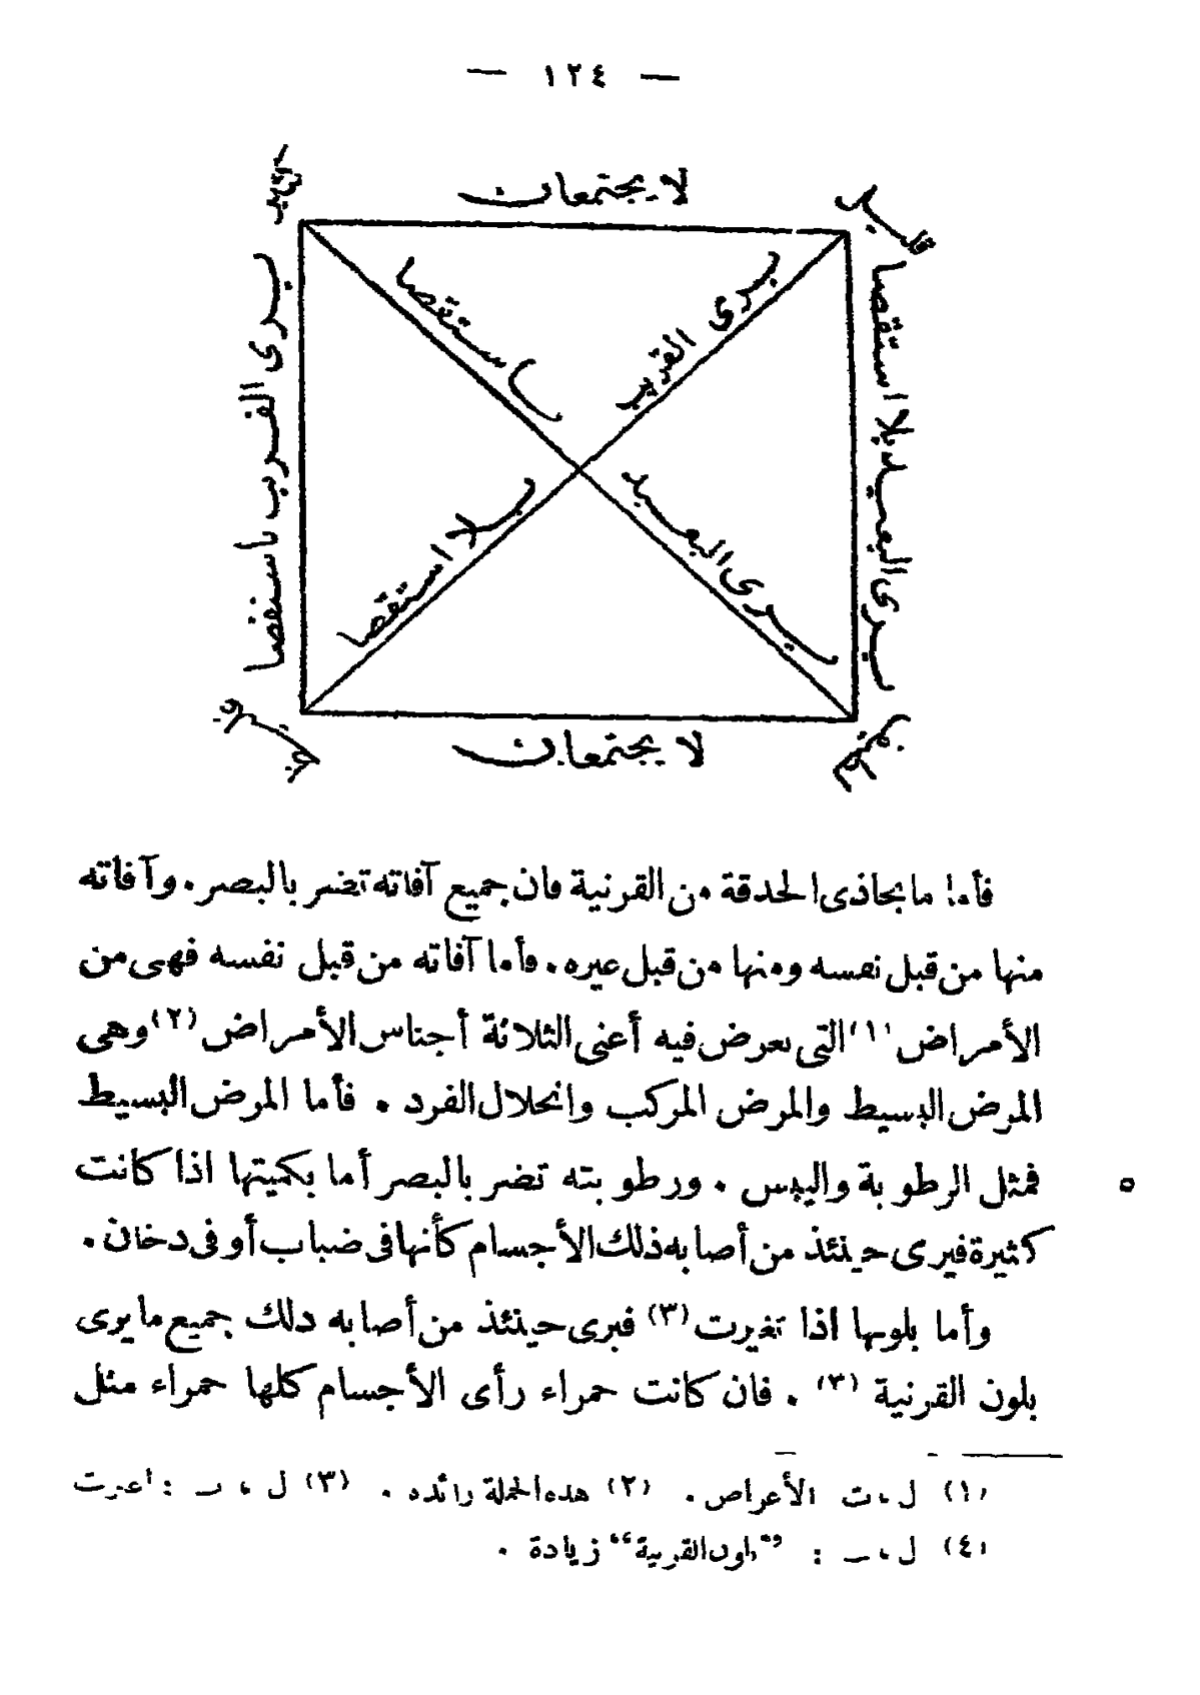 — ١٢٤ —
لا يجتمعان
قليل
يرى القريب باستقصا
استقصا
يرى القريب
يرى البعيد بلا استقصا
بلا استقصا
يرى البعيد
لا يجتمعان
غليظ
فأما ما يحاذى الحدقة من القرنية فان جميع آفاته تضر بالبصر . وآفاته
منها من قبل نفسه ومنها من قبل غيره . فأما آفاته من قبل نفسه فهى من
الأمراض (١) التى تعرض فيه أعنى الثلاثة أجناس الأمراض (٢) وهى
المرض البسيط والمرض المركب وانحلال الفرد . فأما المرض البسيط
فمثل الرطوبة واليبس . ورطوبته تضر بالبصر أما بكميتها اذا كانت
٥
كثيرة فيرى حينئذ من أصابه ذلك الأجسام كأنها فى ضباب أو فى دخان .
وأما بلونها اذا تغيرت (٣) فيرى حينئذ من أصابه ذلك جميع ما يرى
بلون القرنية (٣) . فان كانت حمراء رأى الأجسام كلها حمراء مثل
(١) ل ، ت الأعراض . (٢) هذه الجملة زائدة . (٣) ل ، ـ :
(٤) ل ، ـ : "بلون القرنية" زيادة .